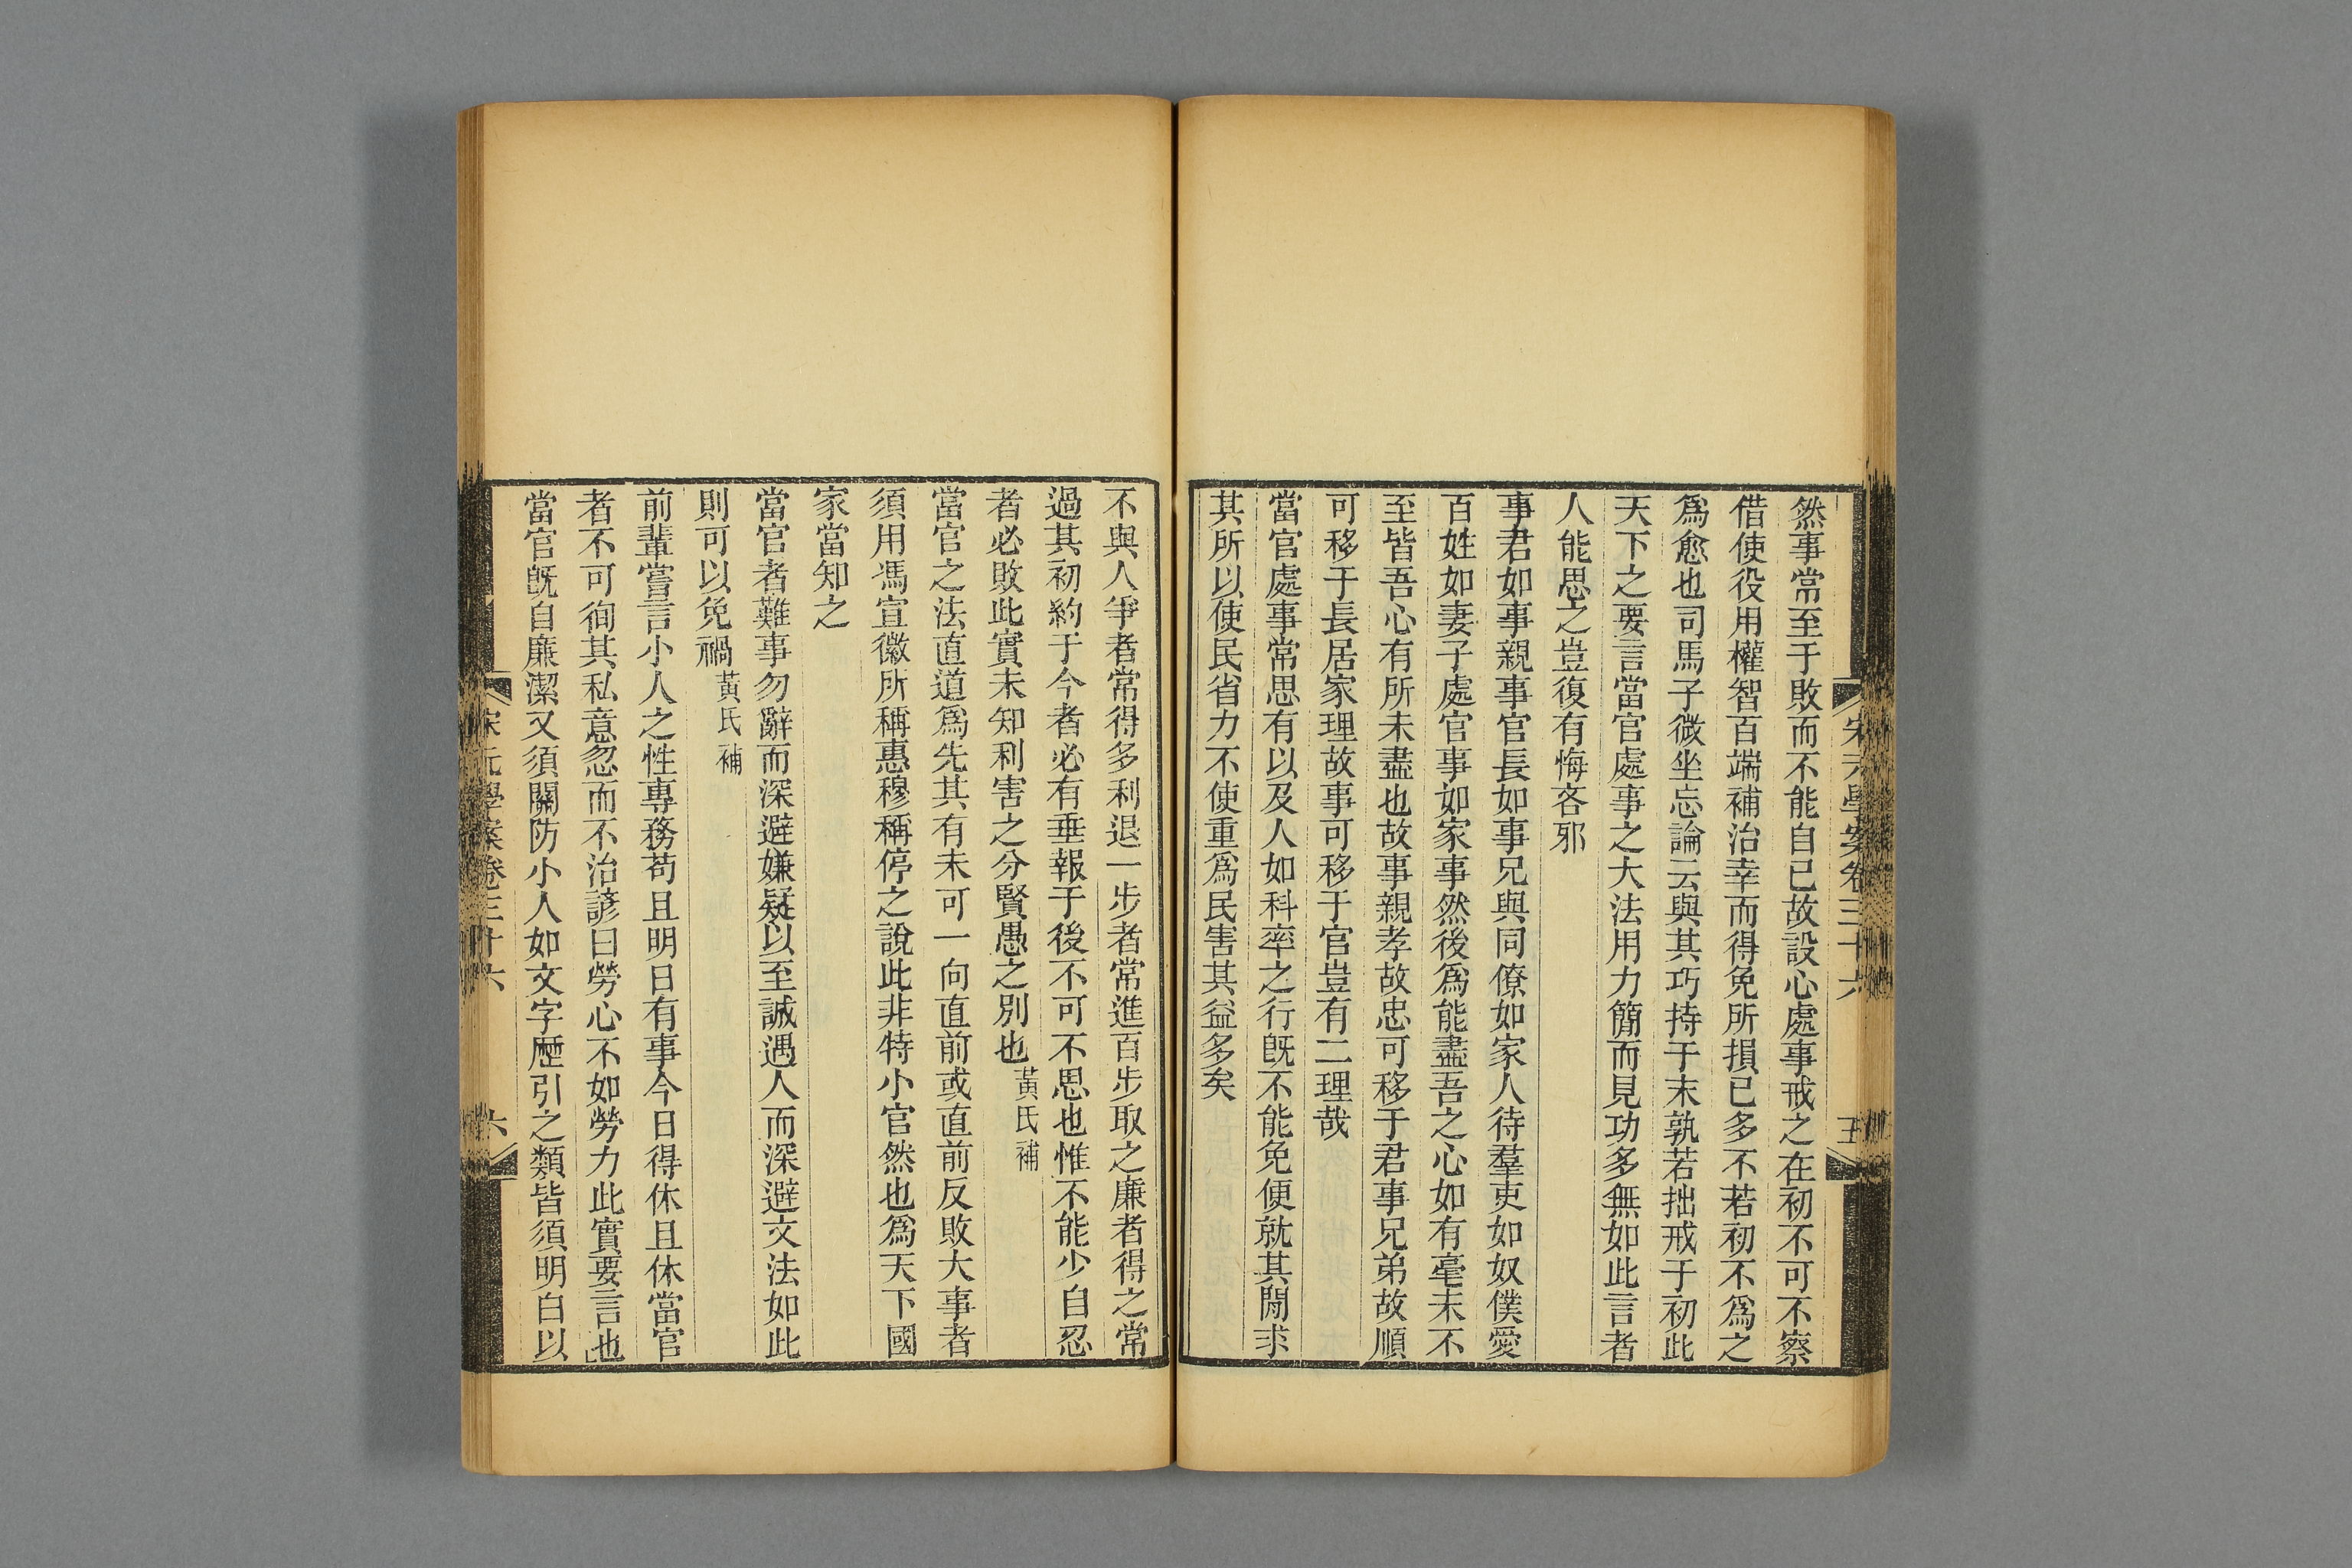 然事常至于敗而不能自已故設心處事戒之在初不可不察
借使役用權智百端補治幸而得免所損已多不若初不爲之
爲愈也司馬子微坐忘論云與其巧持于末孰若拙戒于初此
天下之要言當官處事之大法用力簡而見功多無如此言者
人能思之豈復有悔吝邪
事君如事親事官長如事兄與同僚如家人待羣吏如奴僕愛
百姓如妻子處官事如家事然後爲能盡吾之心如有毫末不
至皆吾心有所未盡也故事親孝故忠可移于君事兄弟故順
可移于長居家理故事可移于官豈有二理哉
當官處事常思有以及人如科率之行旣不能免便就其閒求
其所以使民省力不使重爲民害其益多矣
宋元學案卷三十六
五
不與人爭者常得多利退一步者常進百步取之廉者得之常
過其初約于今者必有垂報于後不可不思也惟不能少自忍
者必敗此實未知利害之分賢愚之別也黃氏補
當官之法直道爲先其有未可一向直前或直前反敗大事者
須用馮宣徽所稱惠穆稱停之說此非特小官然也爲天下國
家當知之
當官者難事勿辭而深避嫌疑以至誠遇人而深避文法如此
則可以免禍黃氏補
前輩嘗言小人之性專務苟且明日有事今日得休且休當官
者不可徇其私意忽而不治諺曰勞心不如勞力此實要言也
當官旣自廉潔又須關防小人如文字歷引之類皆須明白以
宋元學案卷三十六
六